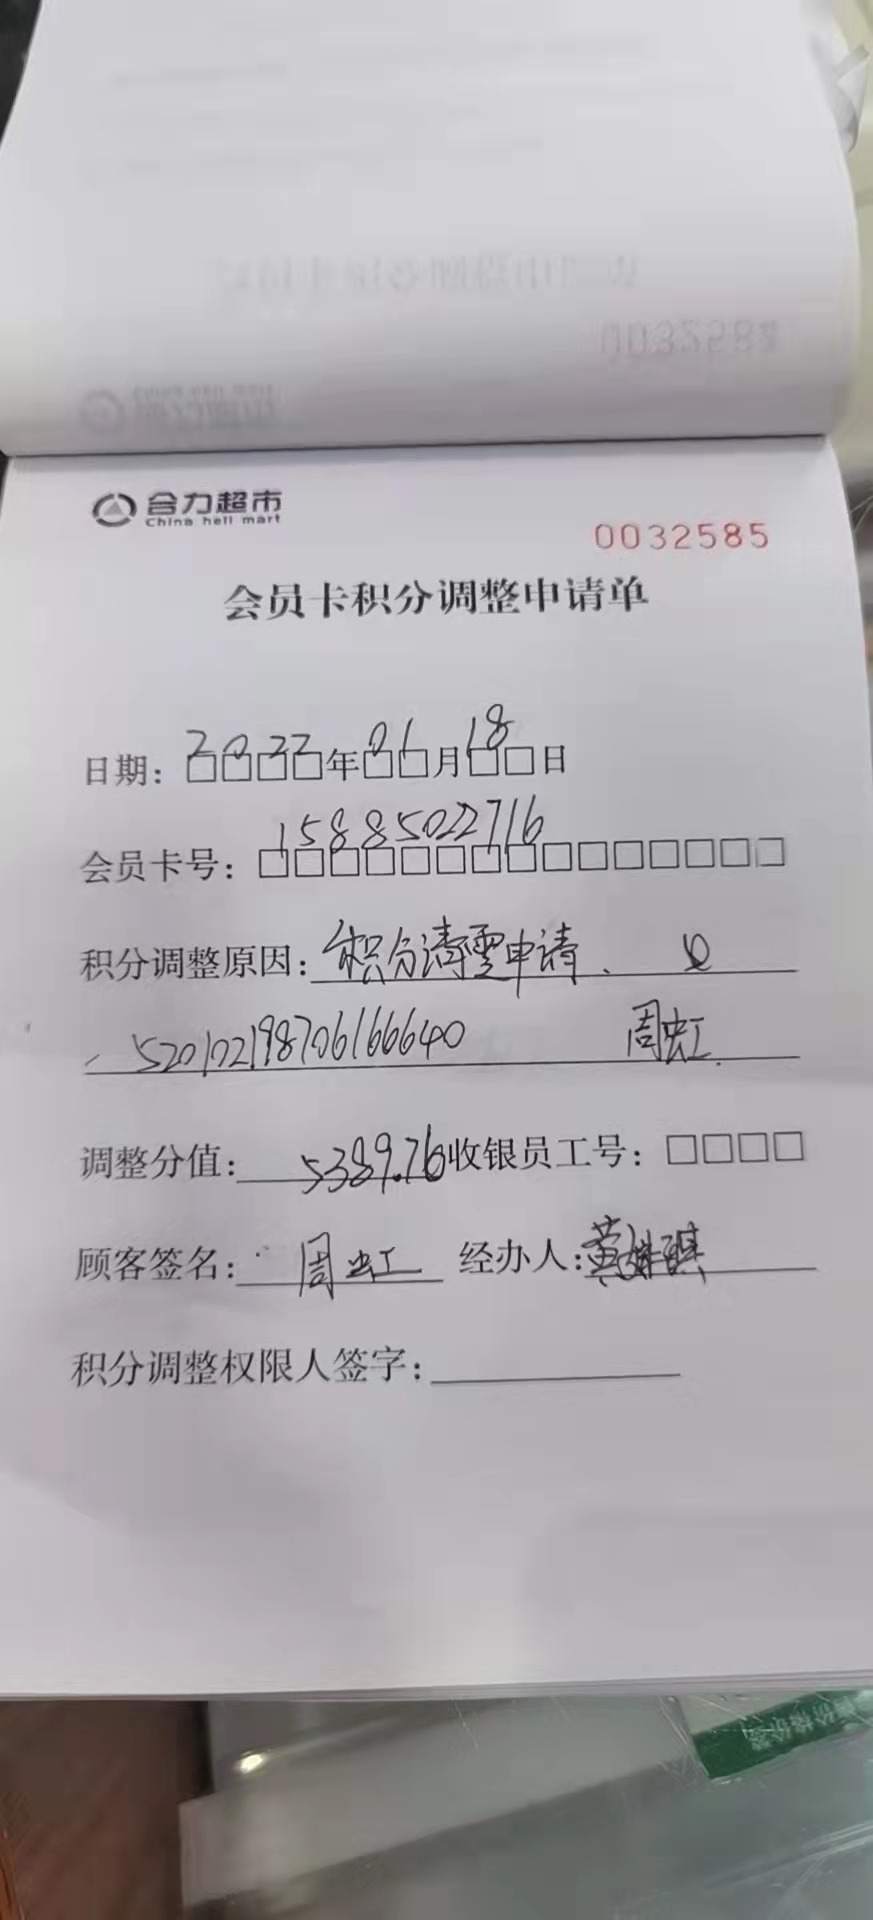 合力超市
China heli mart
0032585
会员卡积分调整申请单
日期：2022年01月18日
会员卡号：15885022716
积分调整原因：积分清零申请、 女
520102198706166640 周虹
调整分值：5389.76 收银员工号：□□□□
顾客签名：周虹 经办人：黄琪
积分调整权限人签字：